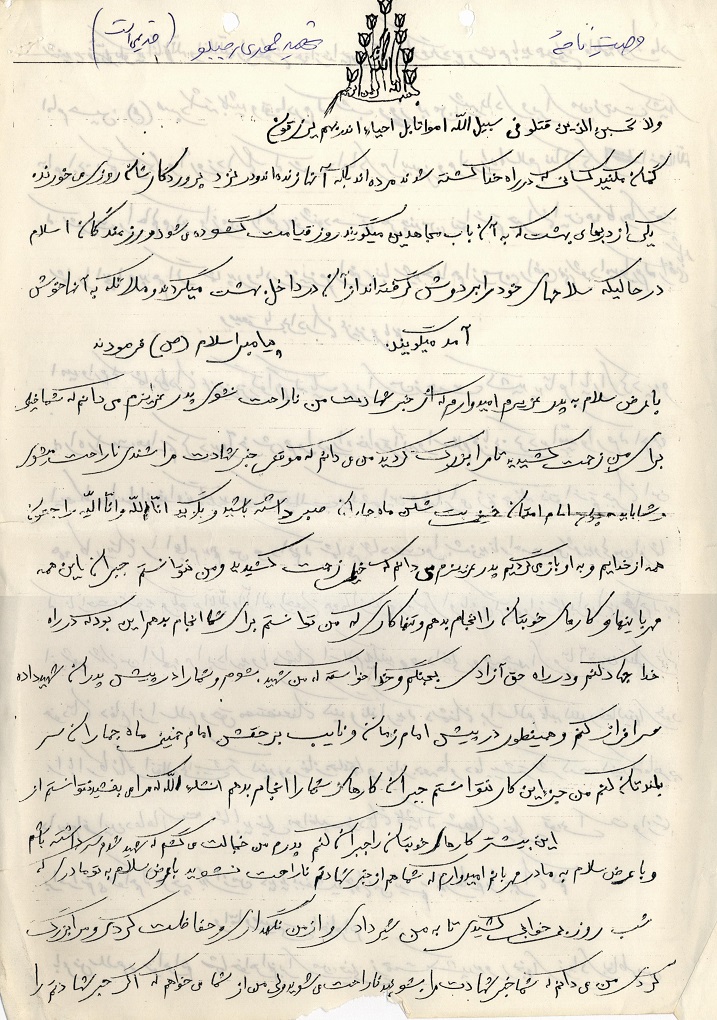 وصیت نامهٔ شهید مهدی رجبلو
بسم الله الرحمن الرحیم
ولا تحسبن الذین قتلو فی سبیل الله امواتا بل احیاء اندربهم یرزقون
گمان مکنید کسانی که در راه خدا کشته شوند مرده اند بلکه آنها زنده اند و در نزد پروردگارشان روزی می خورند
یکی از دربهای بهشت که به آن باب مجاهدین میگویند روز قیامت گشوده می شود و رزمندگان اسلام
در حالیکه سلاحهای خود را بر دوش گرفته اند از آن در داخل بهشت میگردند و ملائکه به آنها خوش
آمد میگویند. پیامبر اسلام (ص) فرمودند
با عرض سلام به پدر عزیزم امیدوارم که از خبر شهادت من ناراحت نشوی پدر عزیزم می دانم که شما خیلی
برای من زحمت کشیدید تا مرا بزرگ کردید من می دانم که موقعی خبر شهادت مرا شنیدی ناراحت میشوی
و شما باید امام امتمان بت شکن ماه جماران صبر داشته باشید و بگوئید انا لله و انا الیه راجعون
همه از خدایم و به او باز می گردیم پدر عزیزم می دانم که خیلی زحمت کشیدید ومن نتوانستم جبران این همه
مهربانیها و کارهای خوبتان را انجام بدهم و تنها کاری که من توانستم برای شما انجام بدهم این بود که در راه
خدا جهاد کنم و در راه حق آزادی بجنگم و خدا خواسته که من شهید بشوم و شما را در پیش پدران شهید داده
سرافراز کنم و همینطور در پیش امام زمان و نایب برحقش امام خمینی ماه جماران سر
بلندتان کنم من جز این کار نتوانستم جبران کارهای شما را انجام بدهم انشاء الله که مرا می بخشید نتوانستم از
این بیشتر کارهای خوبتان را جبران کنم پدرم من خجالت می کشم که
و با عرض سلام به مادر مهربانم امیدوارم که شما هم از خبر شهادتم ناراحت نشوید با عرض سلام به تو مادری که
شب روز بی خوابی کشیدی تا به من شیر دادی و از من نگهداری و حفاظت کردی و مرا بزرگ
کردی من می دانم که شما خبر شهادت مرا بشنوید ناراحت می شوید ولی من از شما می خواهم که اگر خبر شهادتم را